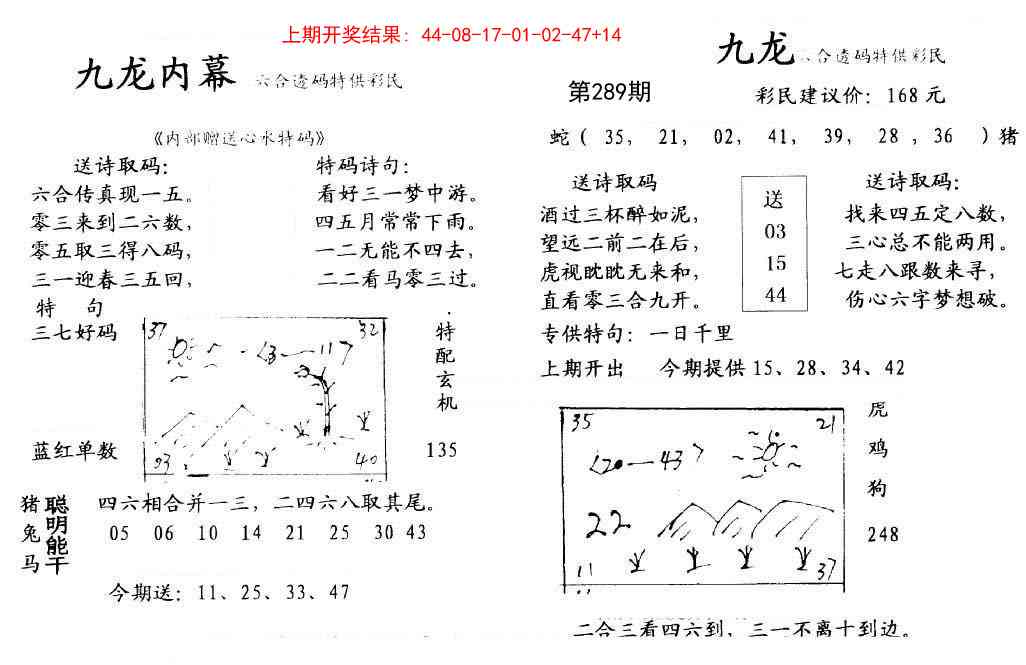 上期开奖结果：44-08-17-01-02-47+14
九龙内幕 六合透码特供彩民
《内部赠送心水特码》
送诗取码：
六合传真现一五。
零三来到二六数，
零五取三得八码，
三一迎春三五回，
特码诗句：
看好三一梦中游。
四五月常常下雨。
一二无能不四去，
二二看马零三过。
特 句
三七好码
蓝红单数
37
32
<3—11>
03
40
特配玄机
135
猪兔马
聪明能干
四六相合并一三，二四六八取其尾。
05 06 10 14 21 25 30 43
今期送：11、25、33、47
九龙 六合透码特供彩民
第289期
彩民建议价：168元
蛇（ 35， 21， 02， 41， 39， 28 ，36 ）猪
送诗取码
酒过三杯醉如泥，
望远二前二在后，
虎视眈眈无来和，
直看零三合九开。
送
03
15
44
送诗取码：
找来四五定八数，
三心总不能两用。
七走八跟数来寻，
伤心六字梦想破。
专供特句：一日千里
上期开出 今期提供15、28、34、42
35
21
<20—43>
22
11
37
虎
鸡
狗
248
二合三看四六到，三一不离十到边。